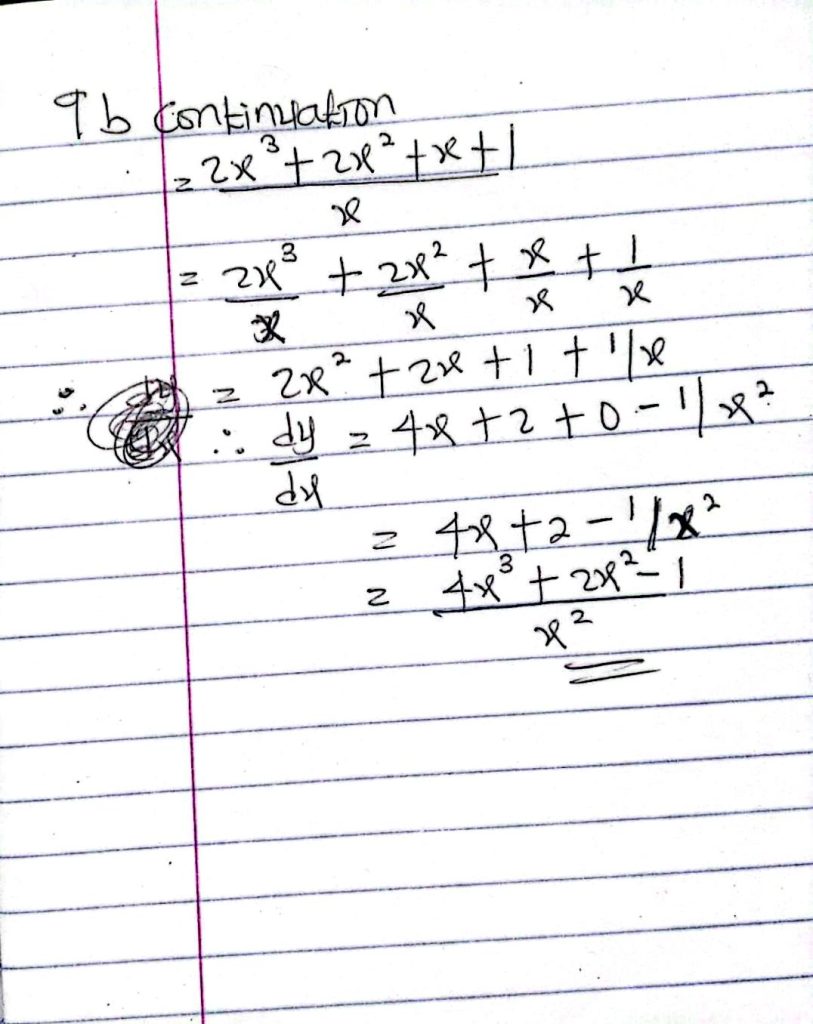 9b continuation
= 2x³ + 2x² + x + 1 / x
= 2x³/x + 2x²/x + x/x + 1/x
∴ = 2x² + 2x + 1 + 1/x
∴ dy/dx = 4x + 2 + 0 - 1/x²
= 4x + 2 - 1/x²
= 4x³ + 2x² - 1 / x²